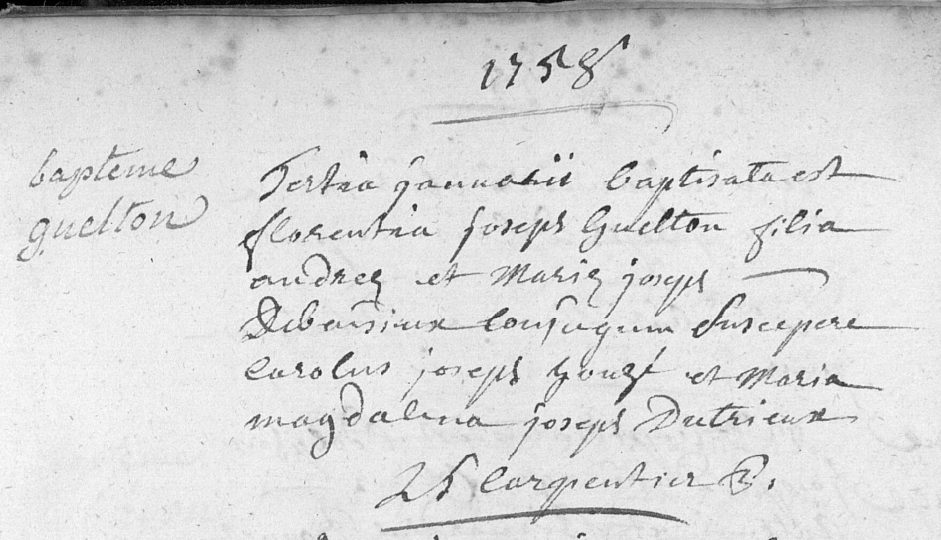 1758
bapteme
guelton
Tertia januarii baptisata est
florentia joseph Guelton filia
andreę et Marię joseph
conjugum Suscepere
Carolus joseph et Maria
magdalena joseph Dutrieux
Carpentier